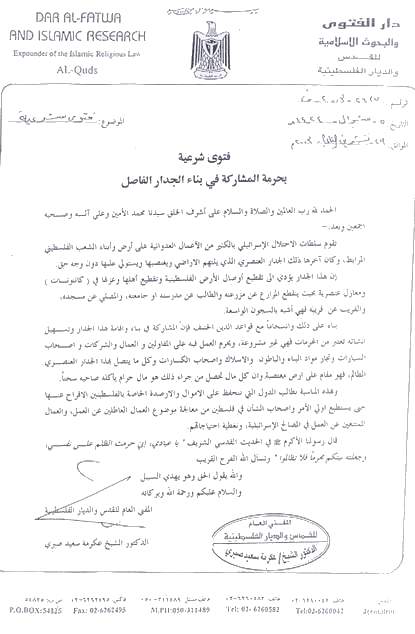 DAR AL-FATWA
AND ISLAMIC RESEARCH
Expounder of the Islamic Religious Law
AL-Quds
دار الفتوى
والبحوث الاسلامية
للقدس
والديار الفلسطينية
الموضوع: فتوى شرعية
فتوى شرعية
بحرمة المشاركة في بناء الجدار الفاصل
الحمد لله رب العالمين والصلاة والسلام على أشرف الخلق سيدنا محمد الأمين وعلى آله وصحبه
أجمعين وبعد،-
تقوم سلطات الاحتلال الإسرائيلي بالكثير من الأعمال العدوانية على أرض وأبناء الشعب الفلسطيني
المرابط، وكان آخرها ذلك الجدار العنصري الذي يلتهم الاراضي ويغتصبها ويستولي عليها دون وجه حق.
إن هذا الجدار يؤدي الى تقطيع أوصال الأرض الفلسطينية وتقطيع أهلها وعزلها في (كانتونات)
ومعازل عنصرية بحيث ينقطع المزارع عن مزرعته والطالب عن مدرسته او جامعته، والمصلي عن مسجده،
والقريب عن قريبه فهي أشبه بالسجون الواسعة.
بناء على ذلك وانسجاماً مع قواعد الدين الحنيف فإن المشاركة في بناء واقامة هذا الجدار وتسهيل
انشائه تعتبر من المحرمات فهي غير مشروعة، ويحرم العمل فيه على المقاولين والعمال والشركات واصحاب
السيارات وتجار مواد البناء والباطون والاسلاك واصحاب الكسارات وكل ما يتصل بهذا الجدار العنصري
الظالم، فهو مقام على ارض مغتصبة وان كل مال تحصل من جراء ذلك هو مال حرام يأكله صاحبه سحتاً.
وبهذه المناسبة نطالب الدول التي تتحفظ على الاموال والارصدة الخاصة بالفلسطينيين الافراج عنها
حتى يستطيع اولي الأمر واصحاب الشأن في فلسطين من معالجة موضوع العمال العاطلين عن العمل، والعمال
المتنعين عن العمل في المصالح الإسرائيلية، وتغطية احتياجاتهم.
قال رسولنا الأكرم ﷺ في الحديث القدسي الشريف "يا عبادي، إني حرمت الظلم على نفسي،
وجعلته بينكم محرماً فلا تظالموا" ونسأل الله الفرج القريب
والله يقول الحق وهو يهدي السبيل
والسلام عليكم ورحمة الله وبركاته
المفتي العام للقدس والديار الفلسطينية
الدكتور الشيخ عكرمة سعيد صبري
المفتي العام
للقدس والديار الفلسطينية
الدكتور الشيخ / عكرمة سعيد صبري
P.O.BOX: 54825 Fax: 02-6262495 M.PH:050-311489 Tel: 02-6260582 Tel:02-6260042 Jerusalem